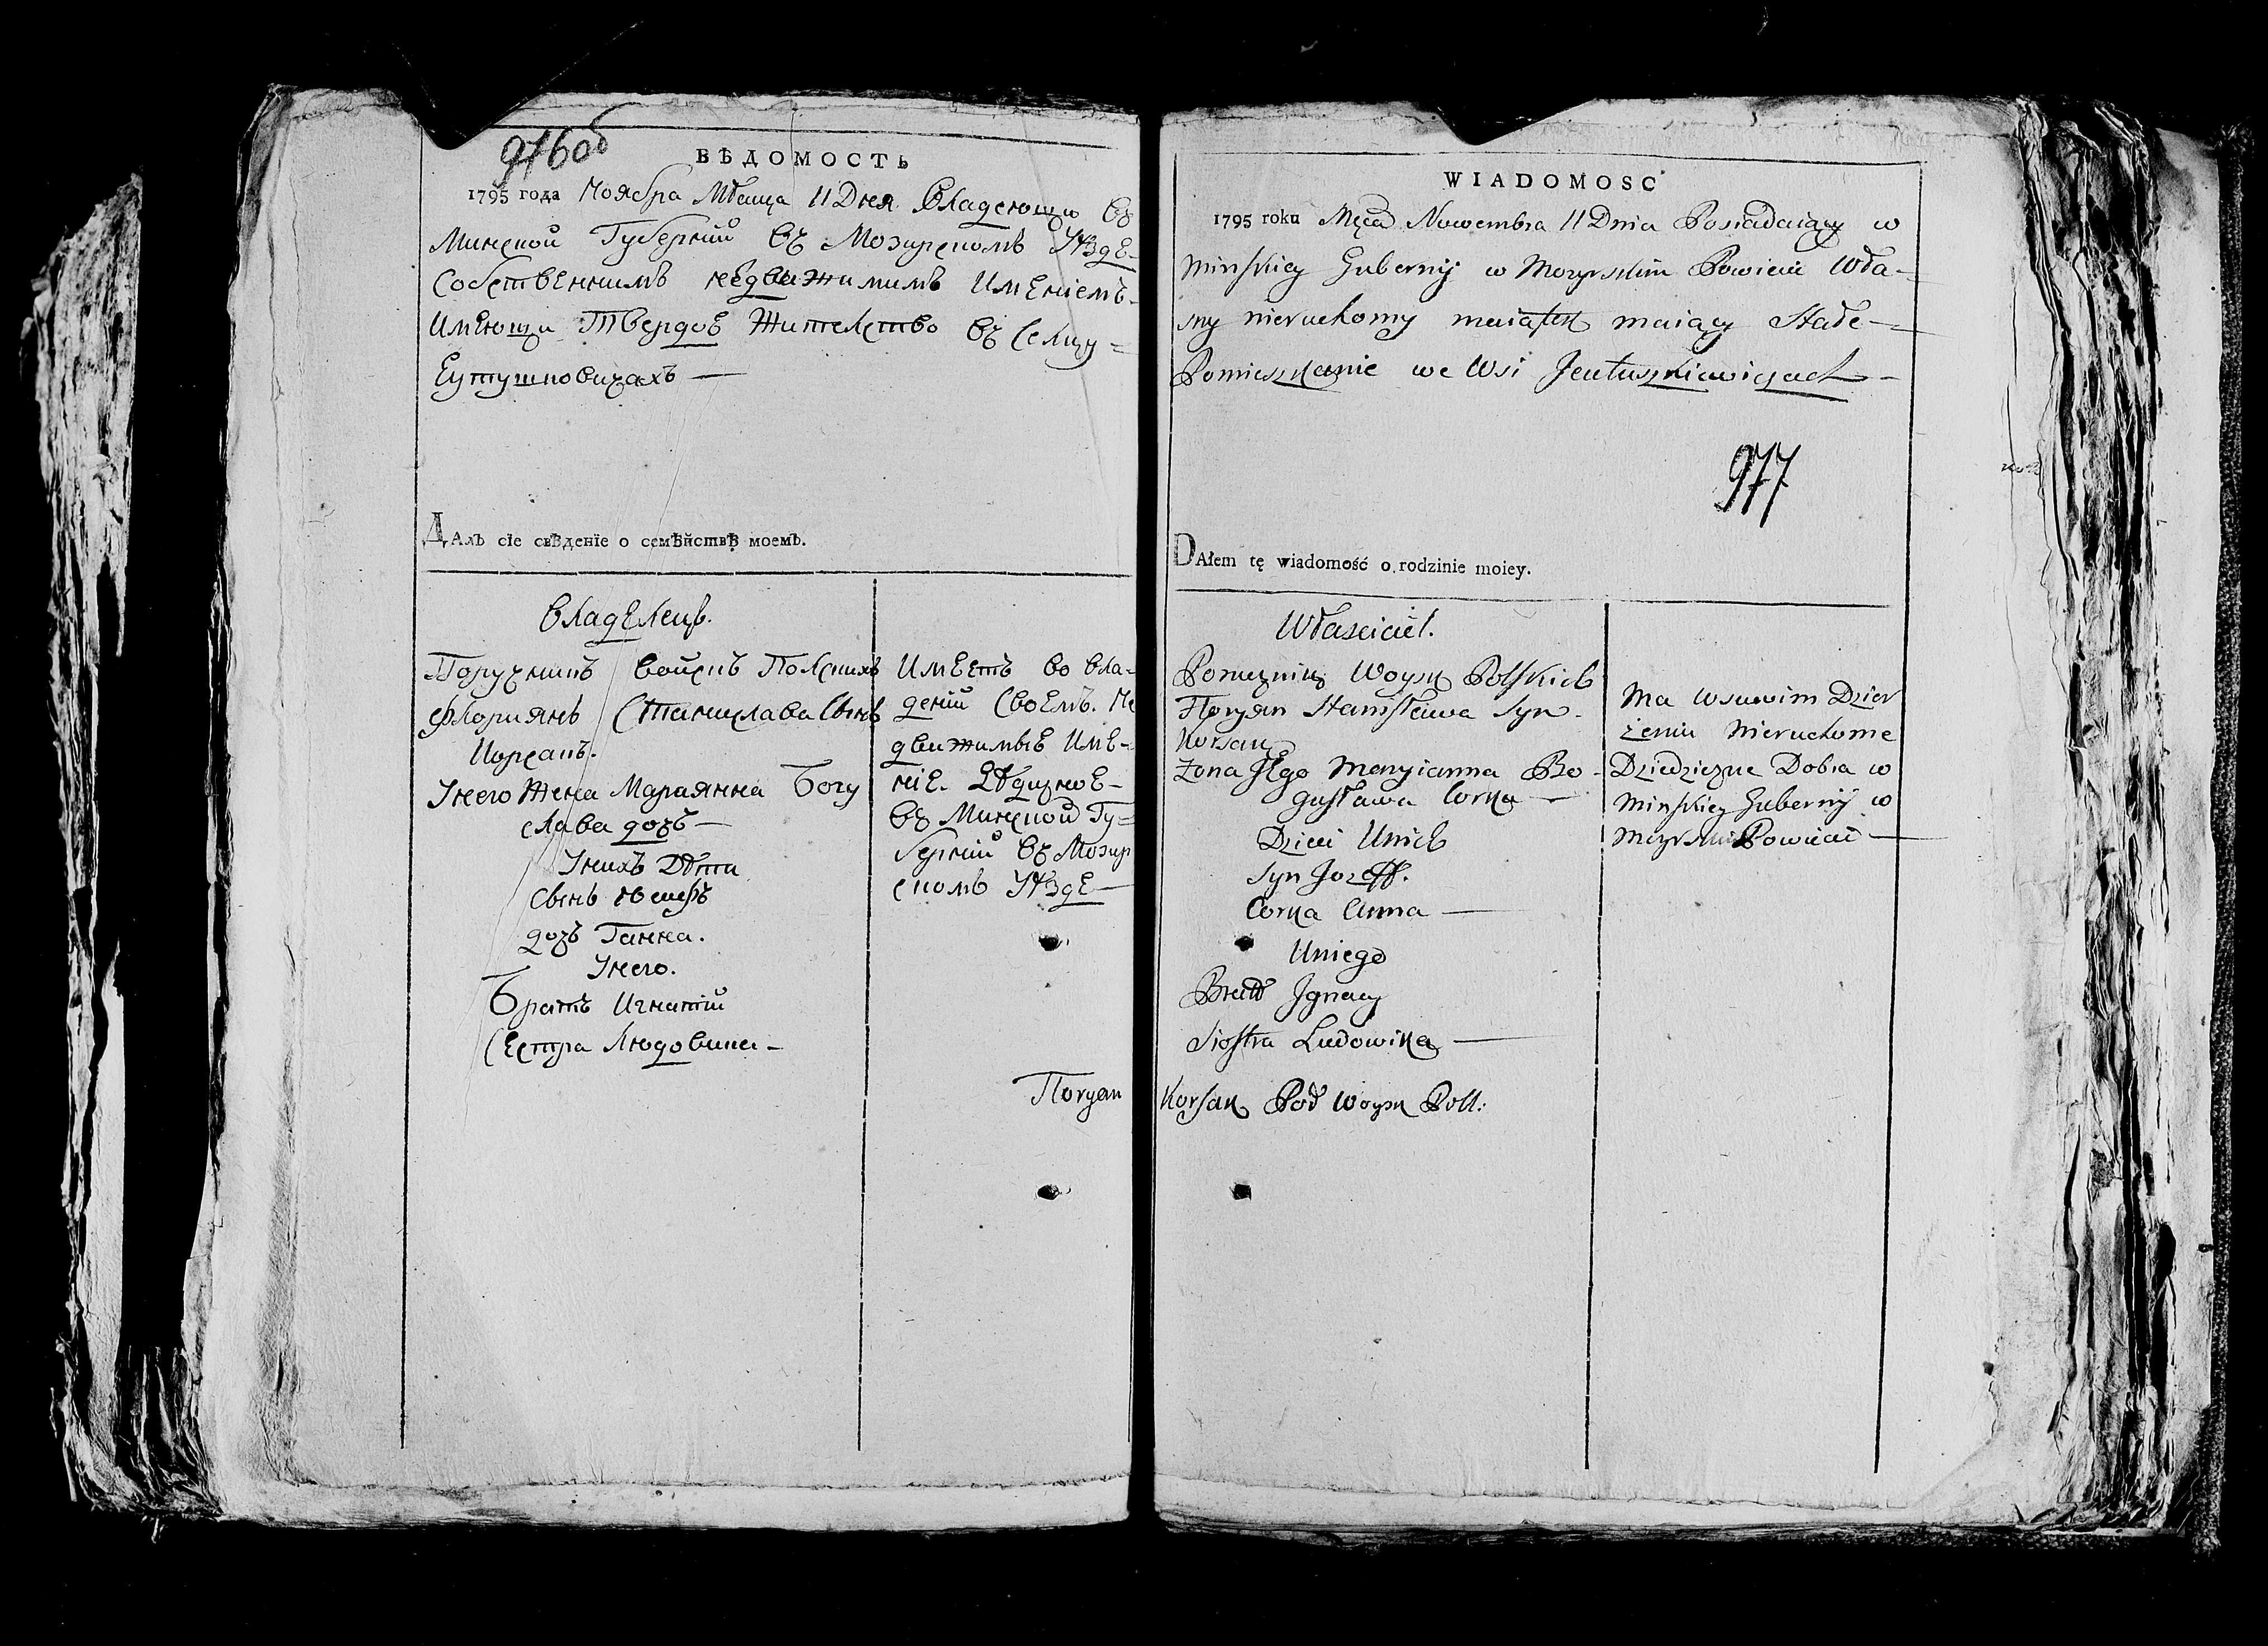 976об
ВѢДОМОСТЬ
1795 года Ноября Мѣсяца 11 Дня Владеющи въ
Минской Губерній въ Мозирскомъ Уѣзде
Собственнимъ недвижимимъ Имениемъ
Имеющи Твердое Жителство въ Селцу
Еутушковичахъ
Далъ сіе свѣденіе о семѣйствѣ моемъ.
Владелецъ.
Поручникъ войскъ Полскихъ
Флориянъ Станислава Сынъ
Корсакъ.
У него Жена Мариянна Богу
слава дочь
У нихъ Дѣти
Сынъ Юзефъ
дочь Ганна.
У него.
Братъ Игнатій
Сестра Людовика
Имеетъ во вла-
деній Своемъ Не
движимые Име-
ніе Дѣдичное
въ Минской Гу-
берній въ Мозир
скомъ Уѣзде
Floryan
WIADOMOSC
1795 roku Mca Nowembra 11 Dnia Posiadaiący w
Minskiey Gubernij w Mozyrskim Powiecie Wła-
sny nieruchomy maiątek maiący Stałe
Pomieszkanie we Wsi Jeutuszkiewiczach
977
DAłem tę wiadomość o rodzinie moiey.
Własciciel.
Porucznik Woysk Polskich
Floryan Stanisława Syn
Korsak
Zona Jego Maryianna Bo-
gusława Corka
Dzieci Unich
Syn Jozeff.
Corka Anna
Uniego
Bratt Jgnacy
Siostra Ludowika
Ma wswoim Dzier
żeniu Nieruchome
Dziedziczne Dobra w
Minskiey Gubernij w
Mozyrskim Powiecie
Korsak Por Woysk Poll: